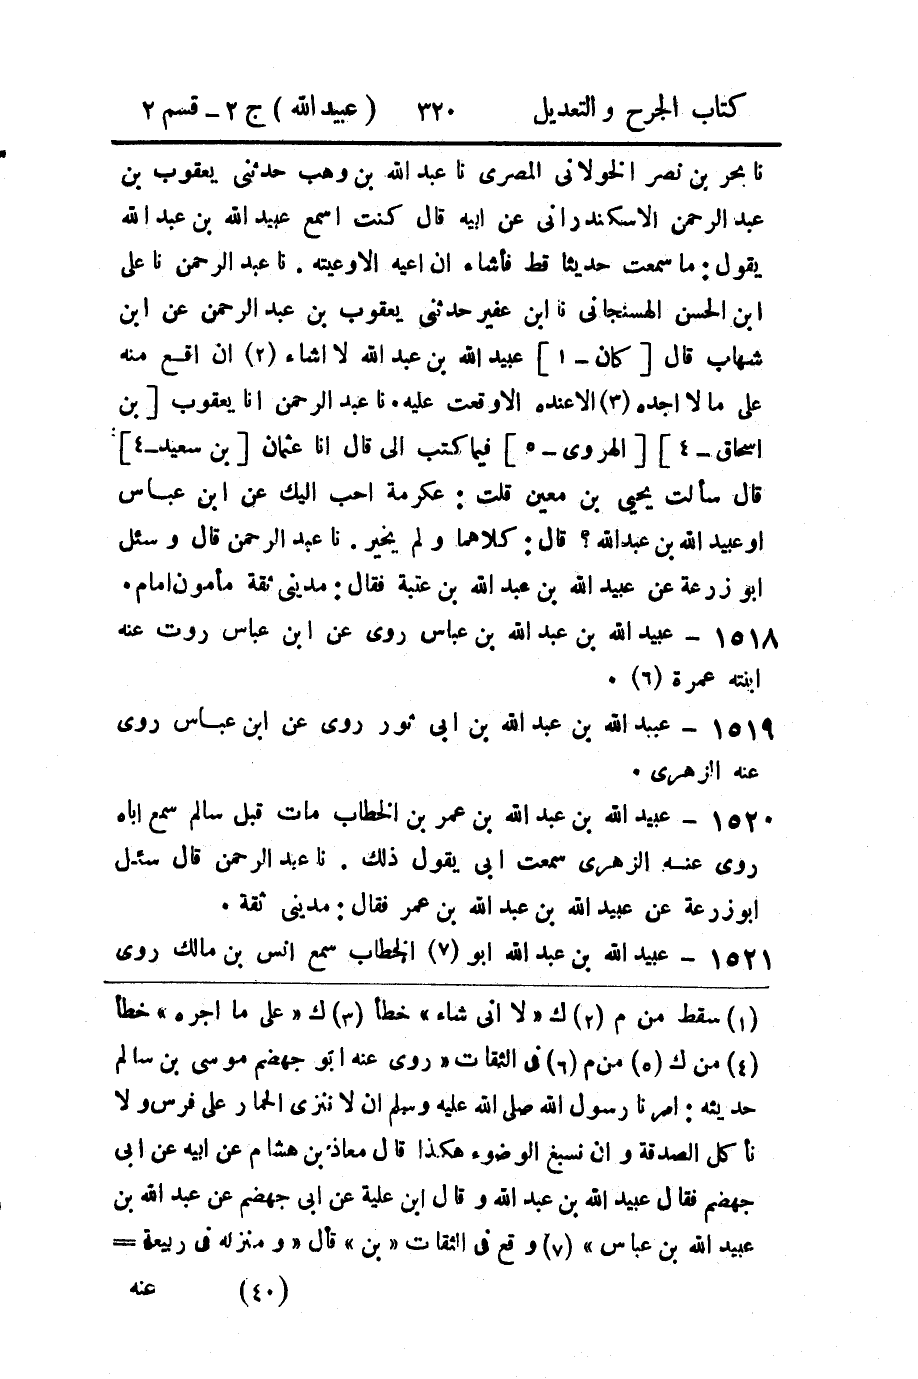 كتاب الجرح والتعديل ٣٢٠ ( عبيد الله ) ج ٢ ـ قسم ٢
نا بحر بن نصر الخولانى المصرى نا عبد الله بن وهب حدثنى يعقوب بن
عبد الرحمن الاسكندرانى عن ابيه قال كنت اسمع عبيد الله بن عبد الله
يقول : ما سمعت حديثا قط فأشاء ان اعيه الا وعيته . نا عبد الرحمن نا على
ابن الحسن الهسنجانى نا ابن عفير حدثنى يعقوب بن عبد الرحمن عن ابن
شهاب قال [ كان ـ ١ ] عبيد الله بن عبد الله لا اشاء (٢) ان اقع منه
على ما لا اجده (٣) الا عنده الا وقعت عليه . نا عبد الرحمن انا يعقوب [ بن
اسحاق ـ ٤ ] [ الهروى ـ ٥ ] فيما كتب الى قال انا عثمان [ بن سعيد ـ ٤ ]
قال سألت يحيى بن معين قلت : عكرمة احب اليك عن ابن عباس
او عبيد الله بن عبد الله ؟ قال : كلاهما و لم يخير . نا عبد الرحمن قال و سئل
ابو زرعة عن عبيد الله بن عبد الله بن عتبة فقال : مدينى ثقة مأمون امام .
١٥١٨ ـ عبيد الله بن عبد الله بن عباس روى عن ابن عباس روت عنه
ابنته عمرة (٦) .
١٥١٩ ـ عبيد الله بن عبد الله بن ابى ثور روى عن ابن عباس روى
عنه الزهرى .
١٥٢٠ ـ عبيد الله بن عبد الله بن عمر بن الخطاب مات قبل سالم سمع اباه
روى عنه الزهرى سمعت ابى يقول ذلك . نا عبد الرحمن قال سئل
ابو زرعة عن عبيد الله بن عبد الله بن عمر فقال : مدينى ثقة .
١٥٢١ ـ عبيد الله بن عبد الله ابو (٧) الخطاب سمع انس بن مالك روى
(١) سقط من م (٢) ك « لا انى شاء » خطأ (٣) ك « على ما اجره » خطأ
(٤) من ك (٥) من م (٦) فى الثقات « روى عنه ابو جهضم موسى بن سالم
حديثه : امرنا رسول الله صلى الله عليه وسلم ان لا ننزى الحمار على فرس و لا
نأكل الصدقة و ان نسبغ الوضوء هكذا قال معاذ بن هشام عن ابيه عن ابى
جهضم فقال عبيد الله بن عبد الله و قال ابن علية عن ابى جهضم عن عبد الله بن
عبيد الله بن عباس » (٧) و قع فى الثقات « بن » قال « و منزله فى ربيعة =
(٤٠) عنه